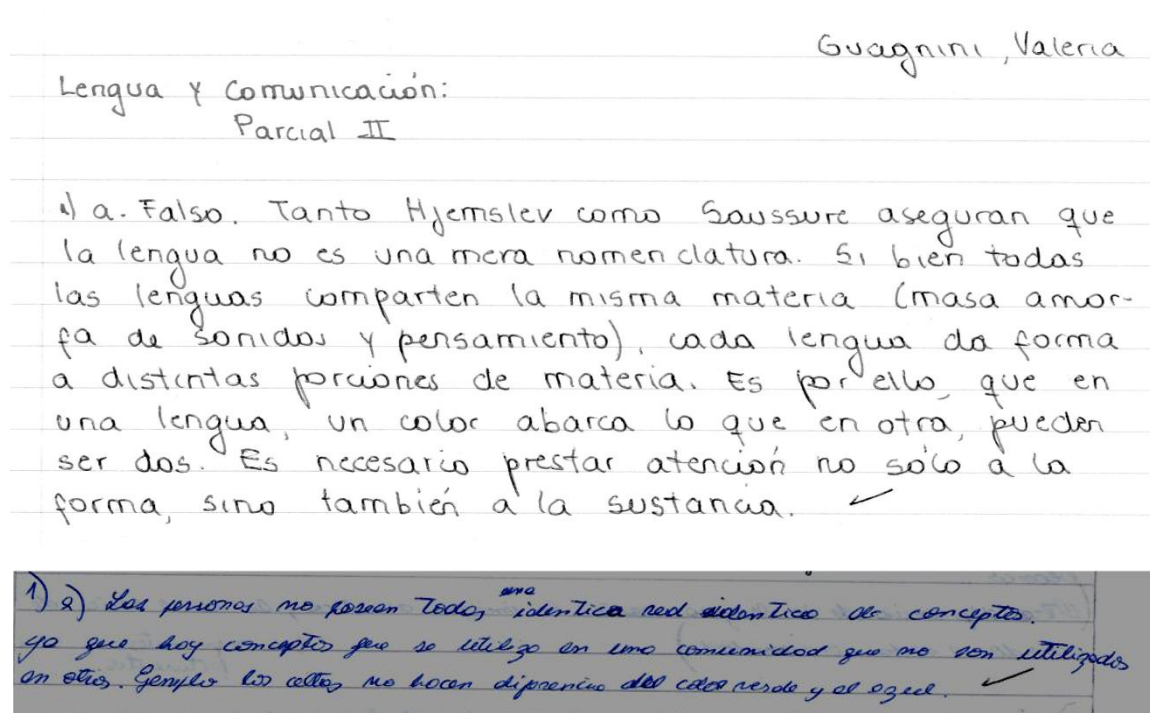 Guagnini, Valeria
Lengua y Comunicación:
Parcial II
1) a. Falso. Tanto Hjemslev como Saussure aseguran que
la lengua no es una mera nomenclatura. Si bien todas
las lenguas comparten la misma materia (masa amor-
fa de sonidos y pensamiento), cada lengua da forma
a distintas porciones de materia. Es por ello, que en
una lengua, un color abarca lo que en otra, pueden
ser dos. Es necesario prestar atención no sólo a la
forma, sino también a la sustancia.
1) a) Las personas no posean todas, una identica red de conceptos.
ya que hay conceptos que se utiliza en una comunidad que no son utilizados
en otras. Ejemplo los celtas no hacen diferencia del color verde y el azul.